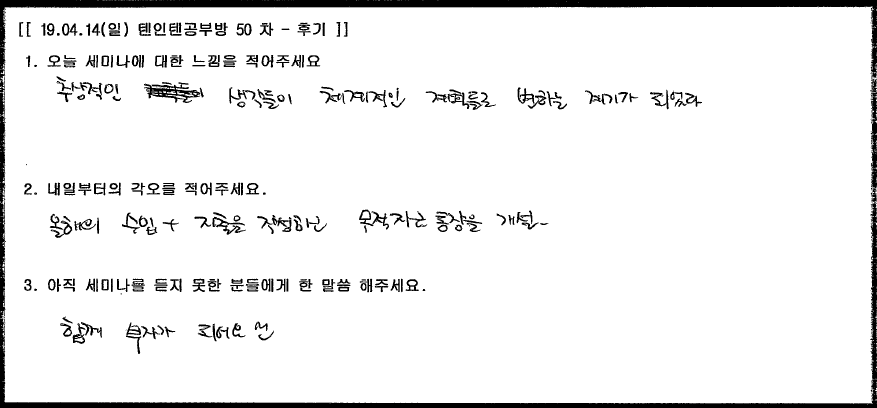 [[ 19.04.14(일) 텐인텐공부방 50 차 - 후기 ]]
1. 오늘 세미나에 대한 느낌을 적어주세요
추상적인 생각들이 체계적인 계획들로 변하는 계기가 되었다
2. 내일부터의 각오를 적어주세요.
올해의 수입 + 지출을 작성하고 목적자금 통장을 개설
3. 아직 세미나를 듣지 못한 분들에게 한 말씀 해주세요.
함께 부자가 되어요